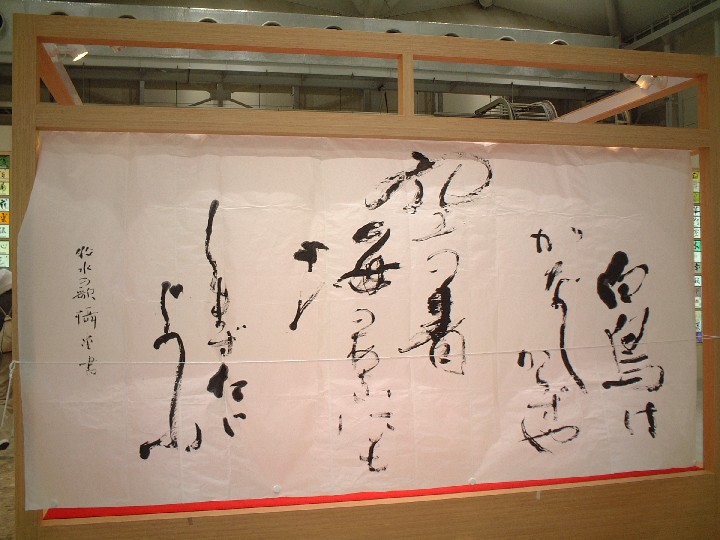 白鳥は
かなしからずや
空の青
海のあをにも
まずただ
よふ
牧水の歌 書